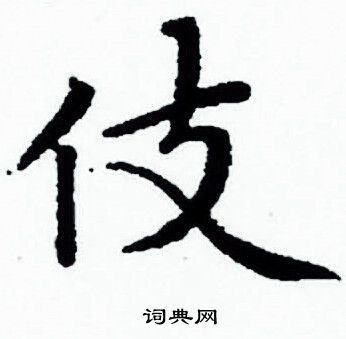 伎
词典网